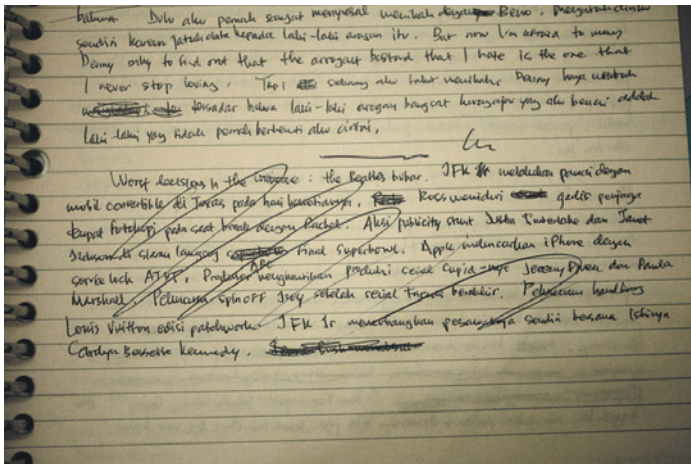 bahwa Dulu aku pernah sangat menyesal menikah dengan Beno. Mengutuk diriku
sendiri karena jatuh cinta kepada laki-laki arogan itu. But now I'm afraid to marry
Denny only to find out that the arrogant bastard that I hate is the one that
I never stop loving. Tapi sekarang aku takut menikahi Denny hanya untuk
tersadar bahwa laki-laki arogan brengsek kurangajar yang aku benci adalah
laki-laki yang tidak pernah berhenti aku cintai.
Worst decisions in the universe : the Beatles bubar. JFK melakukan pawai dengan
mobil convertible di Texas pada hari kematiannya. Ross meniduri gadis penjaga
tempat fotokopi pada saat break dengan Rachel. Aksi publicity stunt Justin Timberlake dan Janet
Jackson di siaran langsung final superbowl. Apple meluncurkan iPhone dengan
service lock AT&T. Produser ABC menghentikan produksi serial Cupid-nya Jeremy Piven dan Paula
Marshall. Peluncuran spinoff Joey setelah serial Friends berakhir. Peluncuran handbag
Louis Vuitton edisi patchwork. JFK Jr menerbangkan pesawatnya sendiri bersama istrinya
Carolyn Bessette Kennedy.